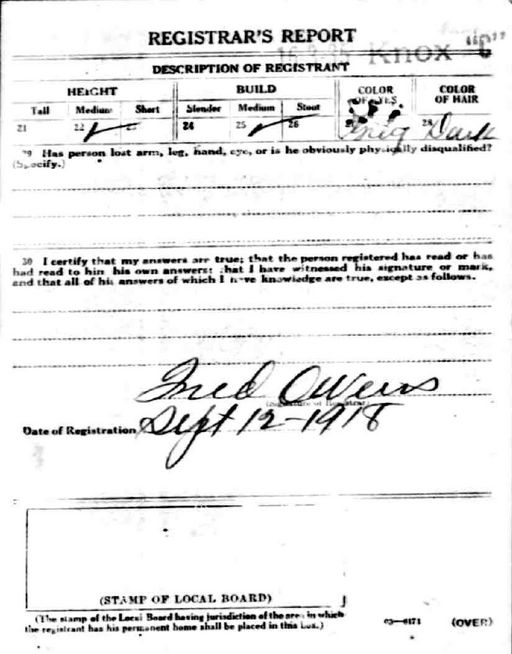 REGISTRAR'S REPORT
Knox
DESCRIPTION OF REGISTRANT
HEIGHT BUILD COLOR OF EYES COLOR OF HAIR
Tall Medium Short Slender Medium Stout
21 22 ✓ 23 24 25 ✓ 26 28 Dark
29 Has person lost arm, leg, hand, eye, or is he obviously physically disqualified?
(Specify.)
30 I certify that my answers are true; that the person registered has read or has
had read to him his own answers; that I have witnessed his signature or mark,
and that all of his answers of which I have knowledge are true, except as follows.
Fred Owens
(Signature of Registrar)
Date of Registration Sept 12-1918
(STAMP OF LOCAL BOARD)
(The stamp of the Local Board having jurisdiction of the area in which
the registrant has his permanent home shall be placed in this box.)
03—6171 (OVER)